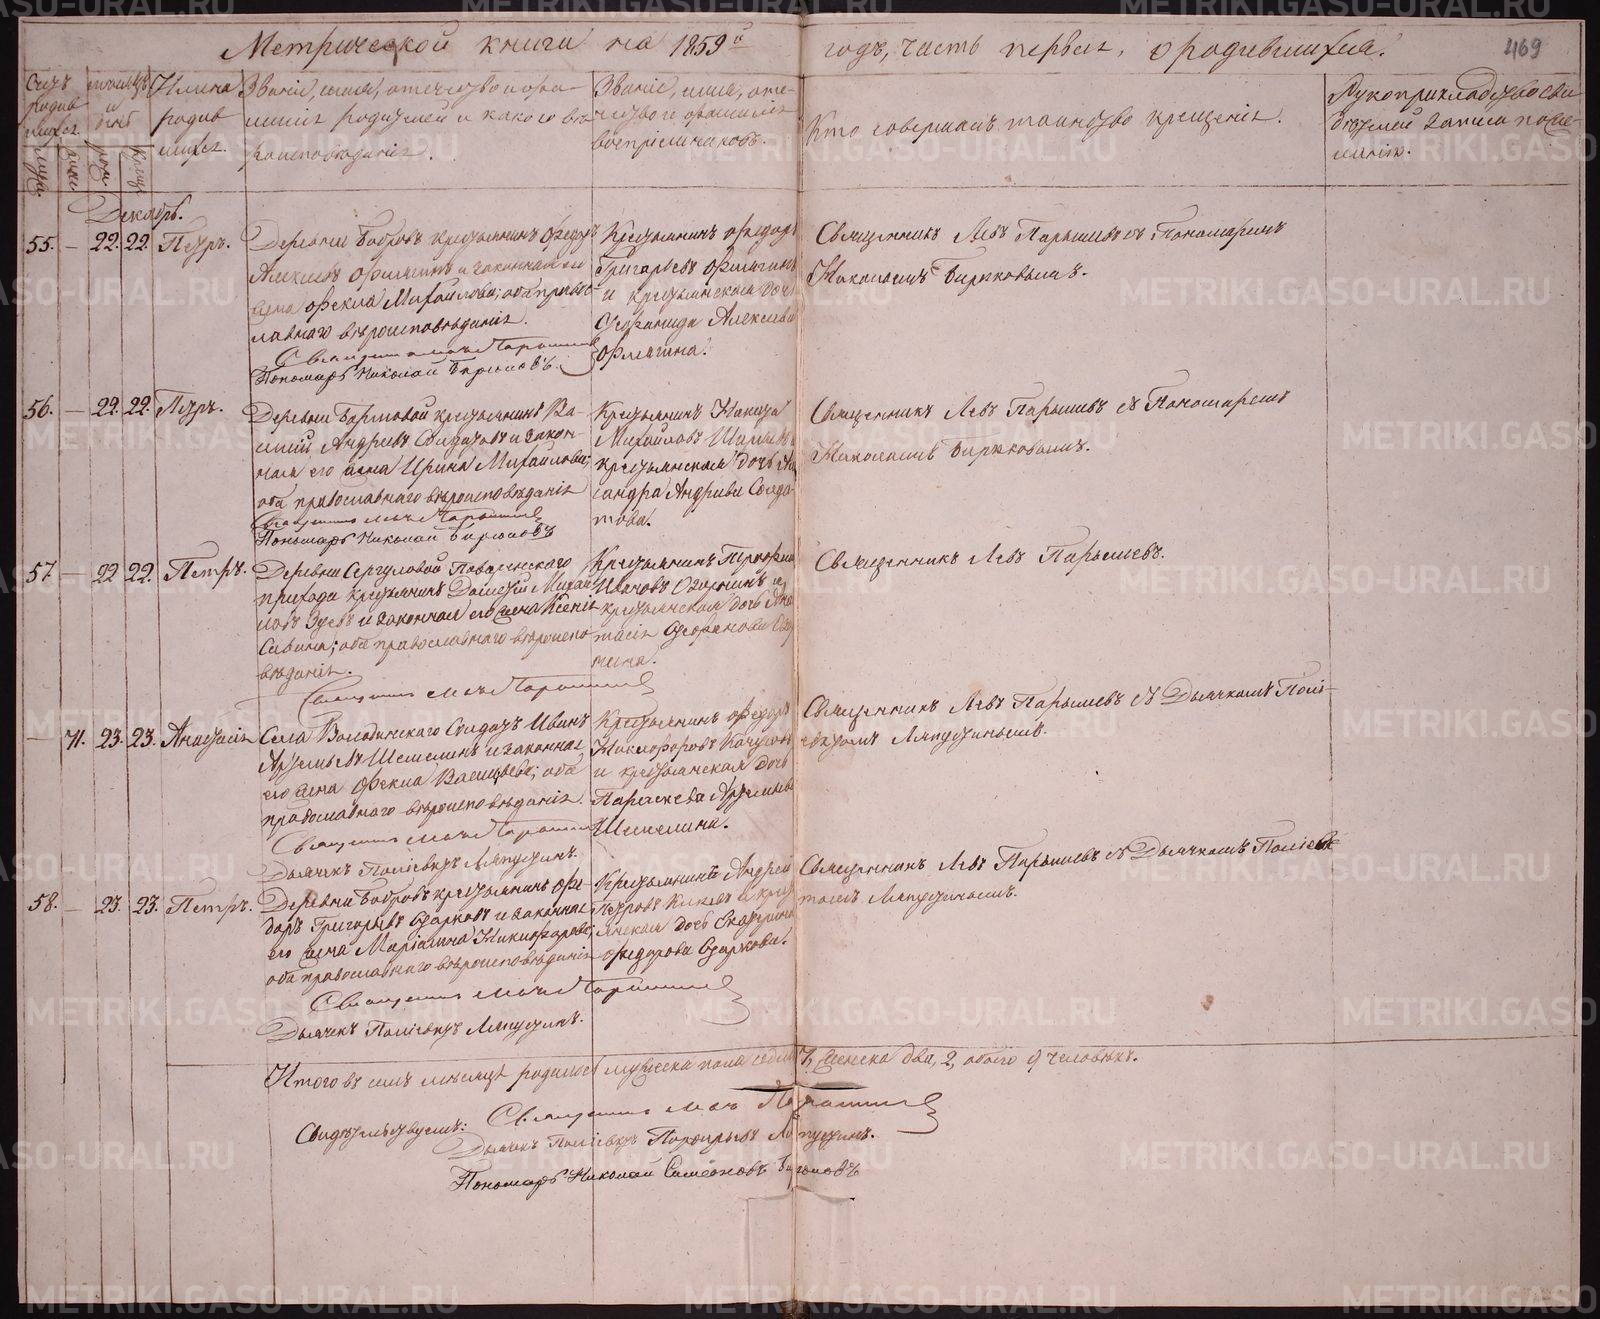 Метрической книги на 1859й годъ, часть первая, о родившихся.
469
Счетъ родив
шихся.
муж.
женс.
Мѣсяцъ
и
день
рожд.
крещ.
Имена
родив
шихся.
Званіе, имя, отечество и фами-
лія родителей и какого вѣ
роисповѣданія.
Званіе, имя, оте-
чество и фамилія
воспріемниковъ.
Кто совершалъ таинство крещенія.
Рукоприкладство сви
дѣтелей записи по же-
ланію.
Декабрь.
55. — 22. 22. Петръ.
Деревни Бобровъ крестьянинъ Ѳедоръ
Алексѣевъ Флягинъ и законная его
жена Фекла Михайлова; оба правос-
лавнаго вѣроисповѣданія.
Священникъ Левъ Парышевъ
Пономарь Николай Бирюковъ.
Крестьянинъ Ѳедоръ
Григорьевъ Флягинъ
и крестьянская дочь
Стефанида Алексѣева
Флягина.
Священникъ Левъ Парышевъ съ Пономаремъ
Николаемъ Бирюковымъ.
56. — 22. 22. Петръ.
Деревни крестьянинъ Ва-
силій Андреевъ Солдатовъ и закон-
ная его жена Ирина Михайлова;
оба православнаго вѣроисповѣданія
Священникъ Левъ Парышевъ
Пономарь Николай Бирюковъ
Крестьянинъ Никита
Михайловъ
крестьянская дочь
сандра Андреева Солда-
това.
Священникъ Левъ Парышевъ съ Пономаремъ
Николаемъ Бирюковымъ.
57 — 22 22. Петръ.
Деревни Сергуловой
прихода крестьянинъ Михай
ловъ и законная его жена Ксенія
Савина; оба православнаго вѣроиспо
вѣданія.
Священникъ Левъ Парышевъ
Крестьянинъ
Ивановъ и
крестьянская дочь Анас
тасія
Священникъ Левъ Парышевъ.
— 71. 23. 23. Анастасія
Села Володинскаго Солдатъ Иванъ
Артемьевъ Шемелинъ и законная
его жена Фекла Васильева; оба
православнаго вѣроисповѣданія.
Священникъ Левъ Парышевъ
Дьячекъ Поліевктъ Ляпустинъ.
Крестьянинъ Ѳедоръ
Никифоровъ
и крестьянская дочь
Параскева Артемьева
Шемелина.
Священникъ Левъ Парышевъ съ Дьячкомъ Полі-
евктомъ Ляпустинымъ.
58. — 23. 23. Петръ.
Деревни Бобровъ крестьянинъ Ѳе-
доръ Григорьевъ Старковъ и законная
его жена Маріамна Никифорова;
оба православнаго вѣроисповѣданія
Священникъ Левъ Парышевъ
Дьячекъ Поліевктъ Ляпустинъ.
Крестьянинъ Андрей
Петровъ и крест
янская дочь Екатерина
Ѳедорова Старкова.
Священникъ Левъ Парышевъ съ Дьячкомъ Поліевк
томъ Ляпустинымъ.
Итого въ семъ мѣсяцѣ родилось мужеска пола седмь 7, женска два, 2, обоего 9 человѣкъ.
Священникъ Левъ Парышевъ
Свидѣтельствуемъ:
Дьячекъ Поліевктъ Порфирьевъ Ляпустинъ.
Пономарь Николай Симеоновъ Бирюковъ